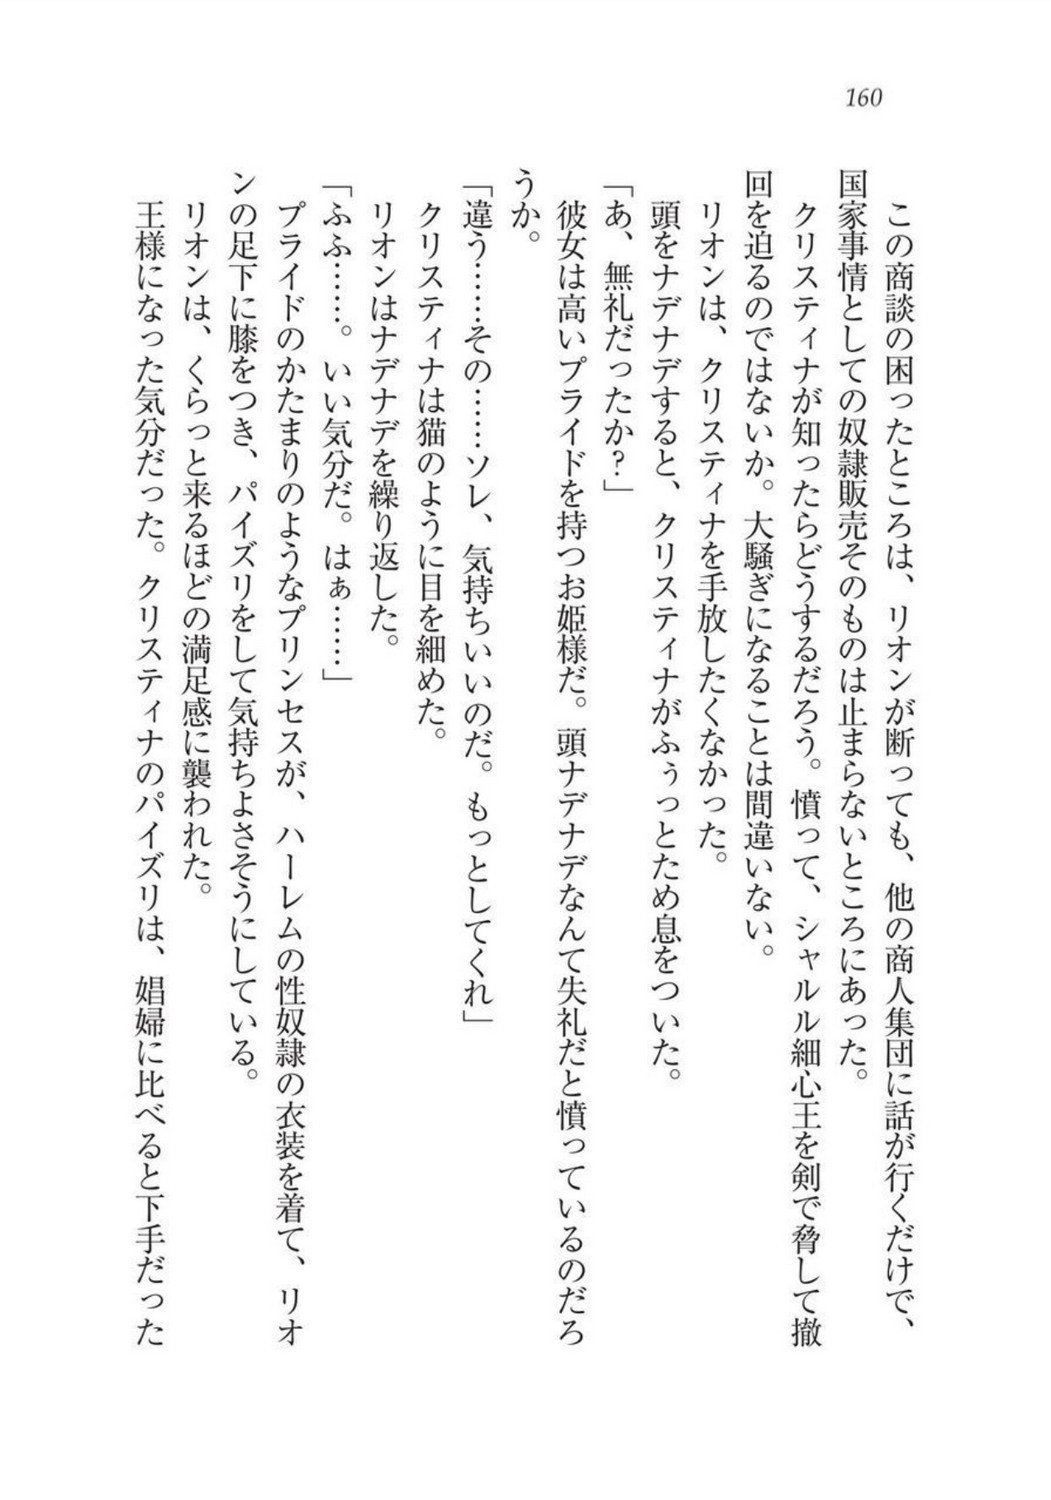 160
この商談の困ったところは、リオンが断っても、他の商人集団に話が行くだけで、
国家事情としての奴隷販売そのものは止まらないところにあった。
クリスティナが知ったらどうするだろう。憤って、シャルル細心王を剣で脅して撤
回を迫るのではないか。大騒ぎになることは間違いない。
リオンは、クリスティナを手放したくなかった。
頭をナデナデすると、クリスティナがふぅっとため息をついた。
「あ、無礼だったか?」
彼女は高いプライドを持つお姫様だ。頭ナデナデなんて失礼だと憤っているのだろ
うか。
「違う……その……ソレ、気持ちいいのだ。もっとしてくれ」
クリスティナは猫のように目を細めた。
リオンはナデナデを繰り返した。
「ふふ……。いい気分だ。はぁ……」
プライドのかたまりのようなプリンセスが、ハーレムの性奴隷の衣装を着て、リオ
ンの足下に膝をつき、パイズリをして気持ちよさそうにしている。
リオンは、くらっと来るほどの満足感に襲われた。
王様になった気分だった。クリスティナのパイズリは、娼婦に比べると下手だった